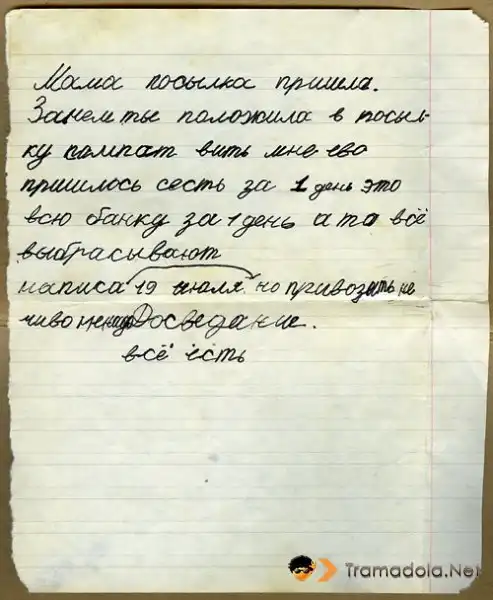 Мама посылка пришла.
Зачем ты положила в посыл-
ку кампат вить мне ево
пришлось сесть за 1 день это
всю банку за 1 день а то всё
выбрасывают
написа 19 июля но привозить не
чиво Досведание.
всё есть
Tramadola.Net